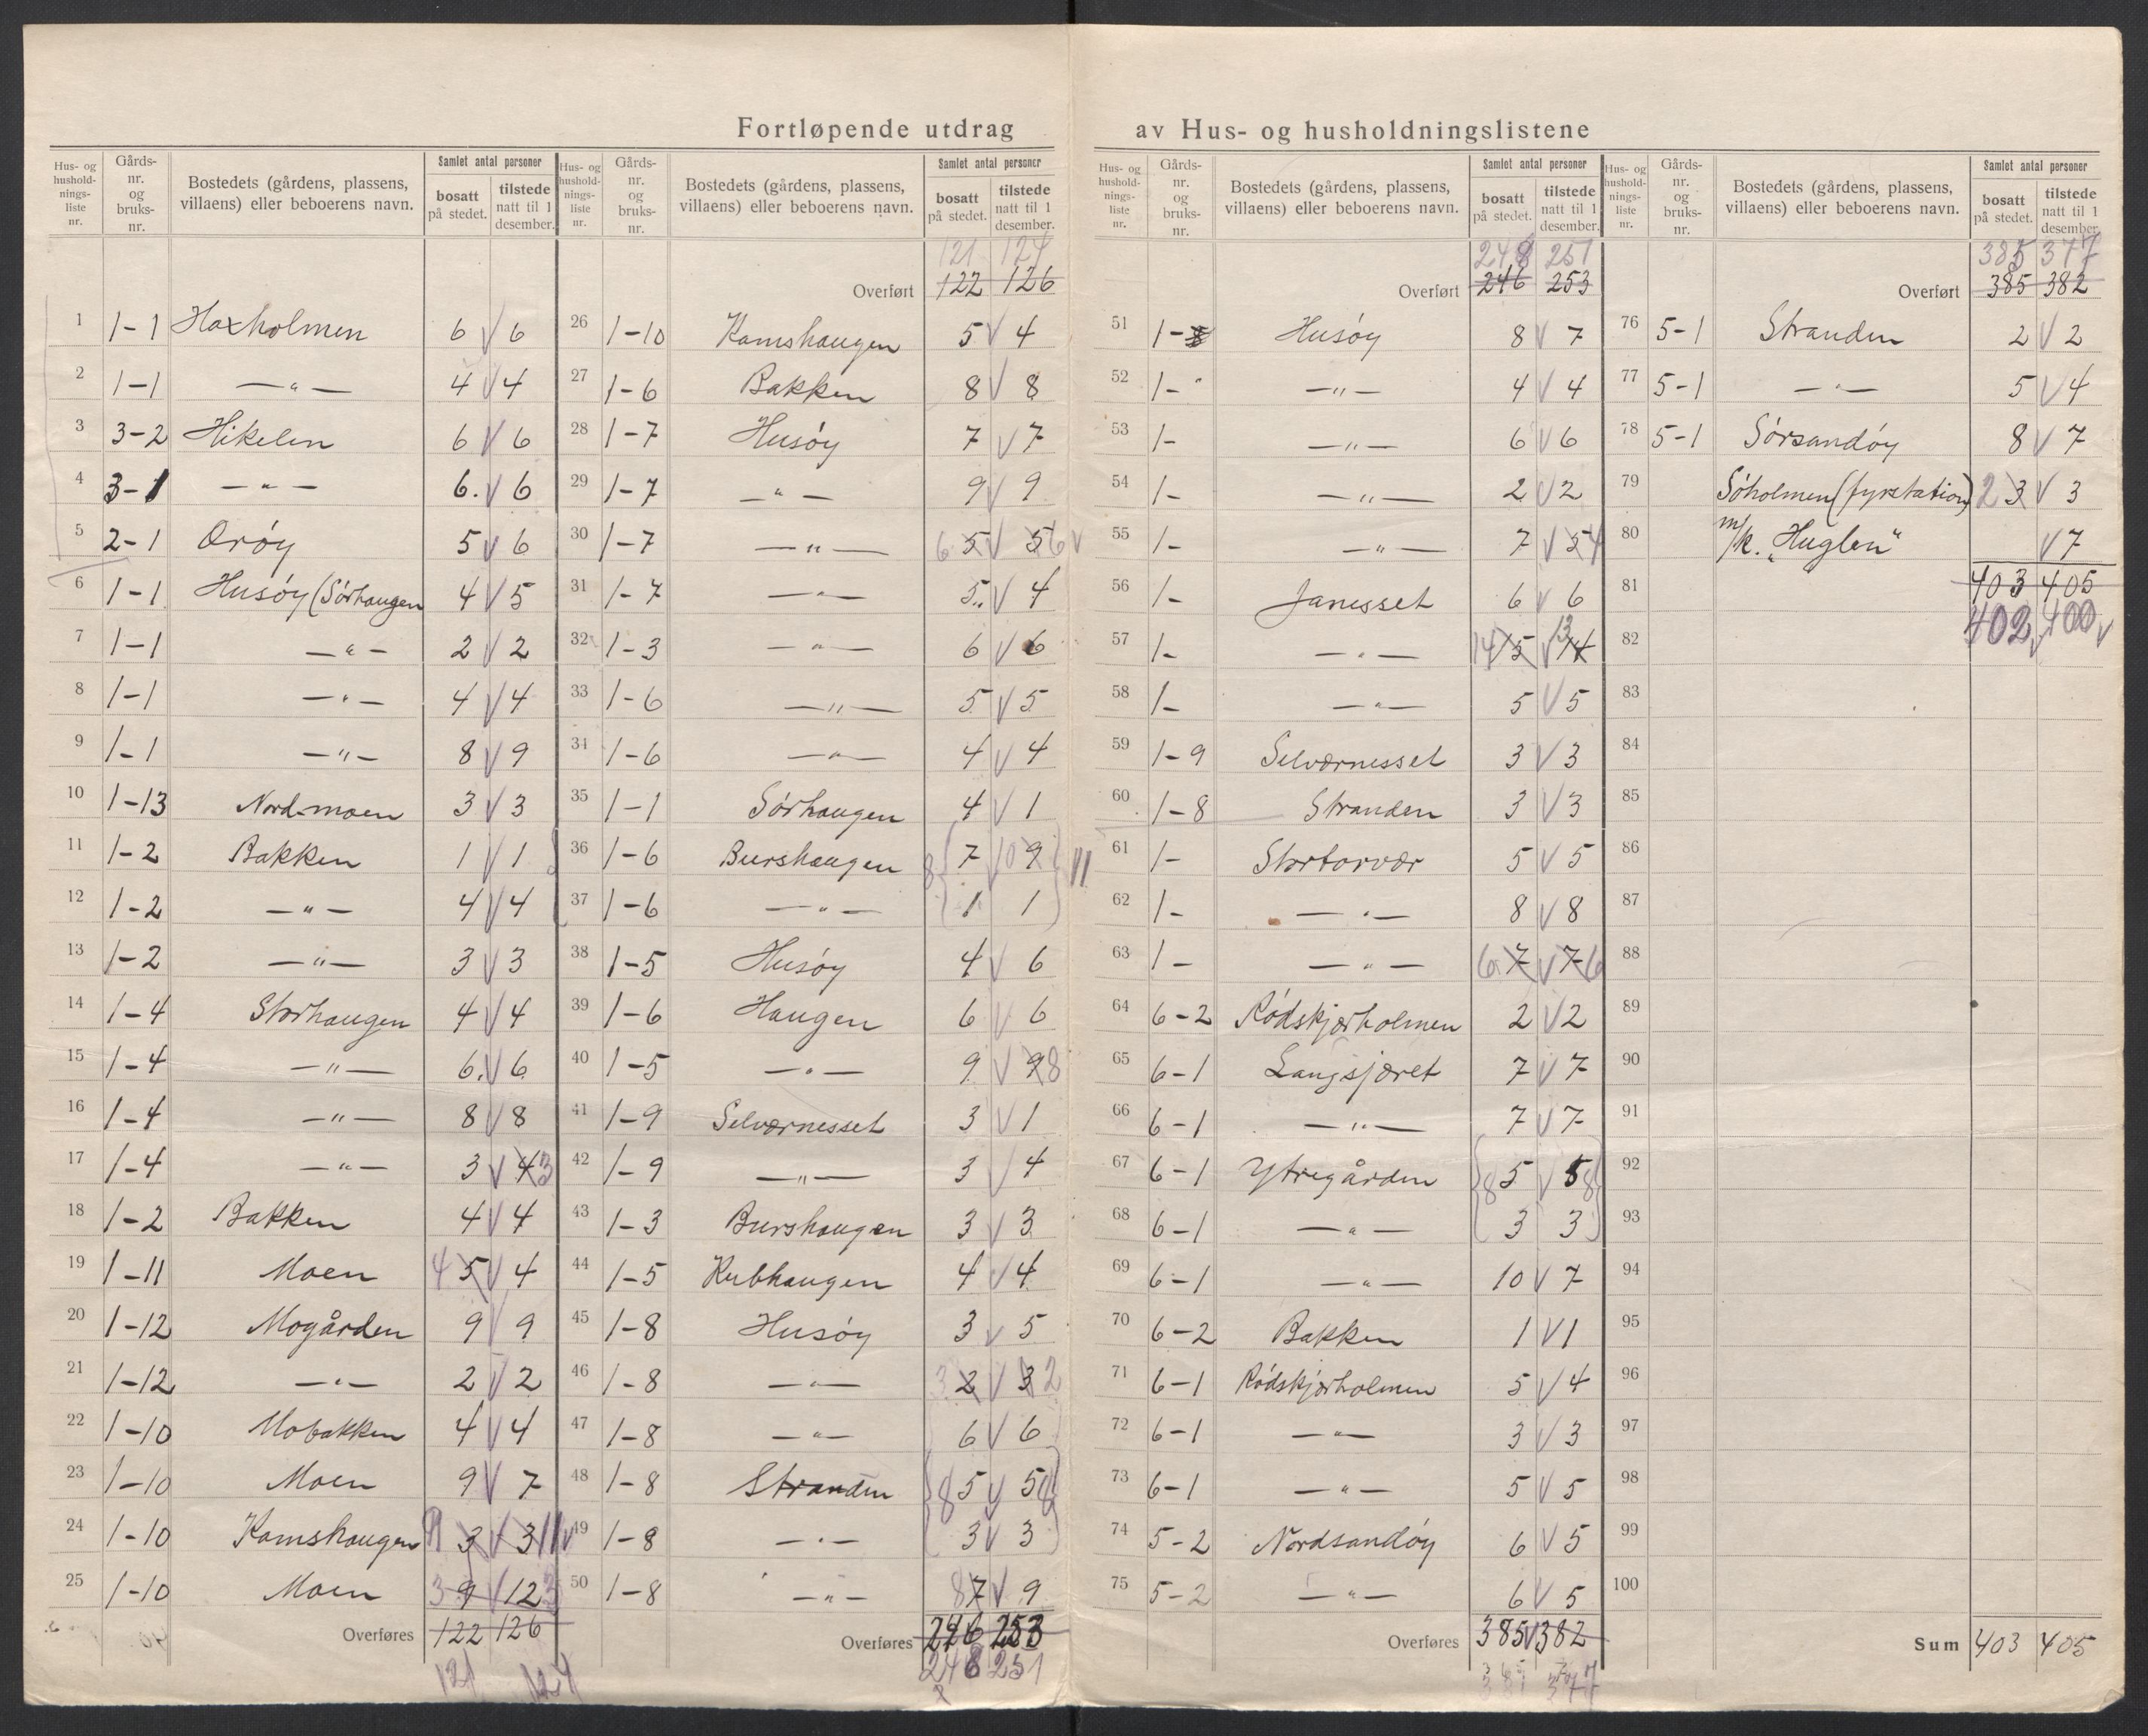 Fortløpende utdrag av Hus- og husholdningslistene
Hus- og husholdnings-liste nr. | Gårds-nr. og bruks-nr. | Bostedets (gårdens, plassens, villaens) eller beboerens navn. | Samlet antal personer bosatt på stedet. | tilstede natt til 1 desember.
1 1-1 Haxholmen 6 V 6
2 1-1 — " — 4 V 4
3 3-2 Hikelen 6 V 6
4 3-1 — " — 6 V 6
5 2-1 Orøy 5 V 6
6 1-1 Husøy (Sørhaugen 4 V 5
7 1-1 — " — 2 V 2
8 1-1 — " — 4 V 4
9 1-1 — " — 8 V 9
10 1-13 Nord-moen 3 V 3
11 1-2 Bakken 1 V 1
12 1-2 — " — 4 V 4
13 1-2 — " — 3 V 3
14 1-4 Storhaugen 4 V 4
15 1-4 — " — 6 V 6
16 1-4 — " — 8 V 8
17 1-4 — " — 3 V 4 3
18 1-2 Bakken 4 V 4
19 1-11 Moen 4 5 V 4
20 1-12 Mogården 9 V 9
21 1-12 — " — 2 V 2
22 1-10 Mobakken 4 V 4
23 1-10 Moen 9 V 7
24 1-10 Kamshaugen 9 3 V 3 11 V
25 1-10 Moen 3 9 V 12 3
Overføres 122 126
121 124
Hus- og husholdnings-liste nr. | Gårds-nr. og bruks-nr. | Bostedets (gårdens, plassens, villaens) eller beboerens navn. | Samlet antal personer bosatt på stedet. | tilstede natt til 1 desember.
121 124
Overført 122 126
26 1-10 Kamshaugen 5 V 4
27 1-6 Bakken 8 V 8
28 1-7 Husøy 7 V 7
29 1-7 — " — 9 V 9
30 1-7 — " — 6 5 V 5 6 V
31 1-7 — " — 5 V 4
32 1-3 — " — 6 V 6
33 1-6 — " — 5 V 5
34 1-6 — " — 4 V 4
35 1-1 Sørhaugen 4 V 1
36 1-6 Burshaugen 8 7 V 10 9 11
37 1-6 — " — 1 1
38 1-5 Husøy 4 V 6
39 1-6 Haugen 6 V 6
40 1-5 — " — 9 V 9 8
41 1-9 Selværnesset 3 V 1
42 1-9 — " — 3 V 4
43 1-3 Burshaugen 3 V 3
44 1-5 Kubhaugen 4 V 4
45 1-8 Husøy 3 V 5
46 1-8 — " — 3 2 V 3 2
47 1-8 — " — 6 V 6
48 1-8 Stranden 8 5 V 5 8
49 1-8 — " — 3 V 3
50 1-8 — " — 8 7 V 9
Overføres 246 253
248 251
Hus- og husholdnings-liste nr. | Gårds-nr. og bruks-nr. | Bostedets (gårdens, plassens, villaens) eller beboerens navn. | Samlet antal personer bosatt på stedet. | tilstede natt til 1 desember.
248 251
Overført 246 253
51 1-8 Husøy 8 V 7
52 1- " — " — 4 V 4
53 1- — " — 6 V 6
54 1- — " — 2 V 2
55 1- — " — 7 V 5 4
56 1- Janesset 6 V 6
57 1- — " — 14 15 V 13 14
58 1- — " — 5 V 5
59 1-9 Selværnesset 3 V 3
60 1-8 Stranden 3 V 3
61 1- Stortorvær 5 V 5
62 1- — " — 8 V 8
63 1- — " — 6 7 V 7 6
64 6-2 Rødskjærholmen 2 V 2
65 6-1 Langsjæret 7 V 7
66 6-1 — " — 7 V 7
67 6-1 Ytregården 8 5 V 5 8
68 6-1 — " — 3 3
69 6-1 — " — 10 V 7
70 6-2 Bakken 1 V 1
71 6-1 Rødskjærholmen 5 V 4
72 6-1 — " — 3 V 3
73 6-1 — " — 5 V 5
74 5-2 Nordsandøy 6 V 5
75 5-2 — " — 6 V 5
Overføres 385 V 382
377
Hus- og husholdnings-liste nr. | Gårds-nr. og bruks-nr. | Bostedets (gårdens, plassens, villaens) eller beboerens navn. | Samlet antal personer bosatt på stedet. | tilstede natt til 1 desember.
385 377
Overført 385 382
76 5-1 Stranden 2 V 2
77 5-1 — " — 5 V 4
78 5-1 Sørsandøy 8 V 7
79 Søholmen (fyrstation) 2 3 V 3
80 m/k. „Huglen" V 7
81 403 405
82 402 V 400 V
83
84
85
86
87
88
89
90
91
92
93
94
95
96
97
98
99
100
Sum 403 405